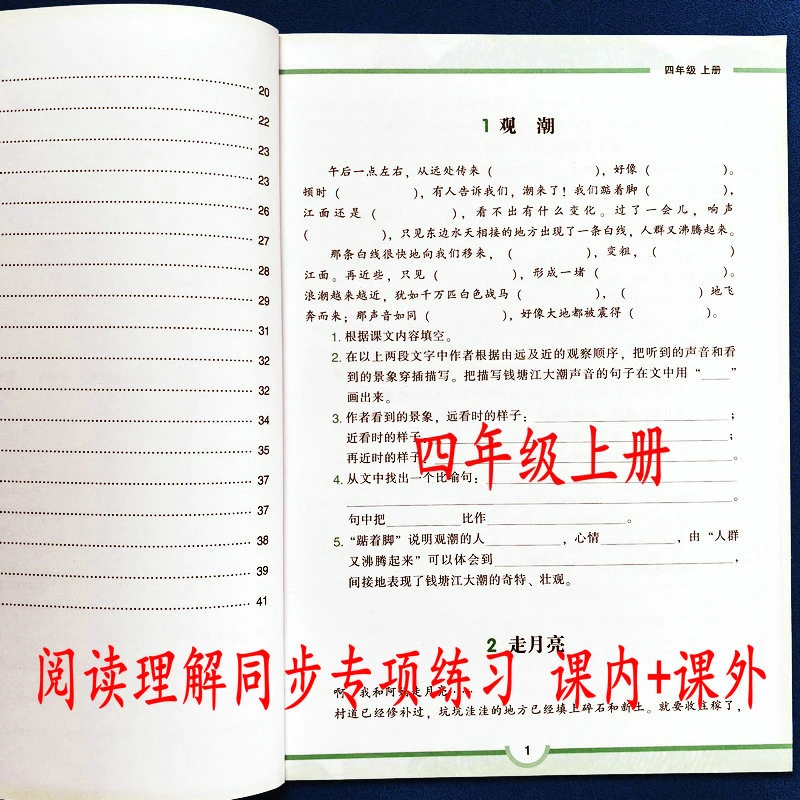 20
22
23
23
26
27
28
29
31
32
32
34
35
37
37
38
39
41
四年级 上册
1 观 潮
午后一点左右，从远处传来（ ），好像（ ）。
顿时（ ），有人告诉我们，潮来了！我们踮着脚（ ），
江面还是（ ），看不出有什么变化。过了一会儿，响声
（ ），只见东边水天相接的地方出现了一条白线，人群又沸腾起来。
那条白线很快地向我们移来，（ ），变粗，（ ）
江面。再近些，只见（ ），形成一堵（ ）。
浪潮越来越近，犹如千万匹白色战马（ ），（ ）地飞
奔而来；那声音如同（ ），好像大地都被震得（ ）。
1. 根据课文内容填空。
2. 在以上两段文字中作者根据由远及近的观察顺序，把听到的声音和看
到的景象穿插描写。把描写钱塘江大潮声音的句子在文中用“____”
画出来。
3. 作者看到的景象，远看时的样子：____；
近看时的样子____；
再近看时的样子：____。
四年级上册
4. 从文中找出一个比喻句：____
____。
句中把____比作____。
5. “踮着脚”说明观潮的人____，心情____，由“人群
又沸腾起来”可以体会到____，
间接地表现了钱塘江大潮的奇特、壮观。
2 走月亮
阅读理解同步专项练习 课内+课外
啊，我和阿妈走月亮……
村道已经修补过，坑坑洼洼的地方已经填上碎石和新土。就要收庄稼了，
1